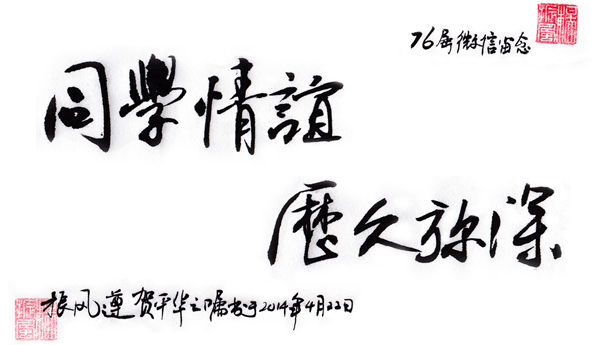 76届微信留念
同學情誼
歷久弥深
振风遵贺平华之嘱书于2014年4月22日